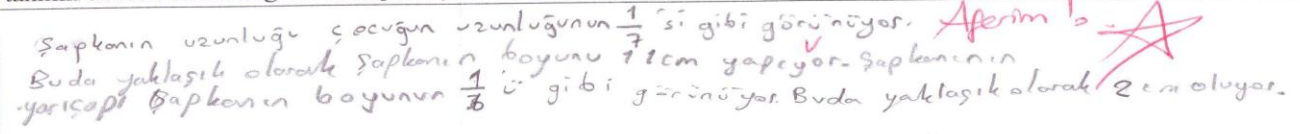 Şapkanın uzunluğu çocuğun uzunluğunun 1/7 'si gibi görünüyor. Aferim
Buda yaklaşık olarak şapkanın boyunu 11cm yapıyor. Şapkanının
yarıçapı şapkanın boyunun 1/6 ü gibi görünüyor. Buda yaklaşık olarak 2 cm oluyor.